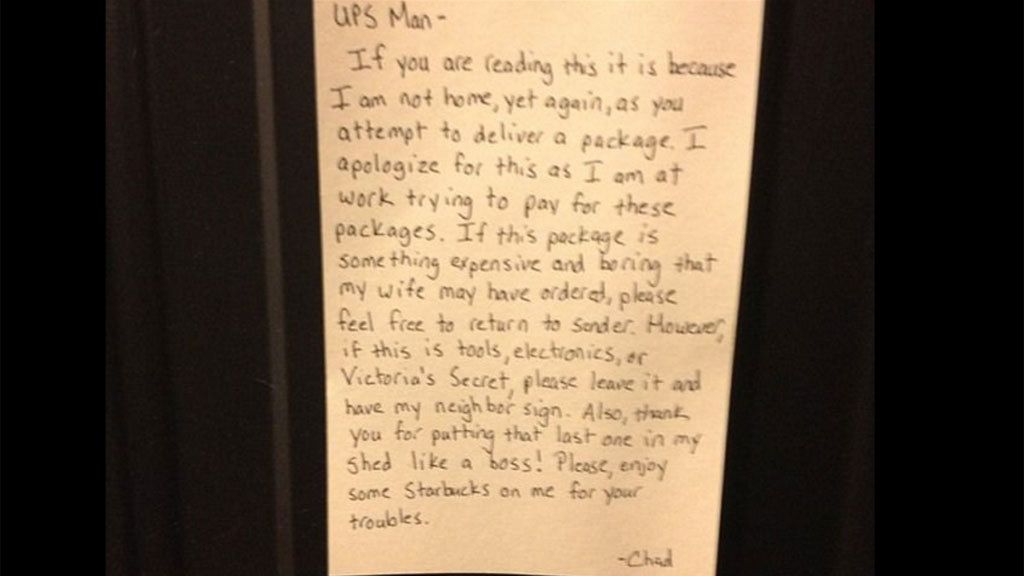 UPS Man-
If you are reading this it is because
I am not home, yet again, as you
attempt to deliver a package. I
apologize for this as I am at
work trying to pay for these
packages. If this package is
something expensive and boring that
my wife may have ordered, please
feel free to return to sender. However,
if this is tools, electronics, or
Victoria's Secret, please leave it and
have my neighbor sign. Also, thank
you for putting that last one in my
shed like a boss! Please, enjoy
some Starbucks on me for your
troubles.
-Chad